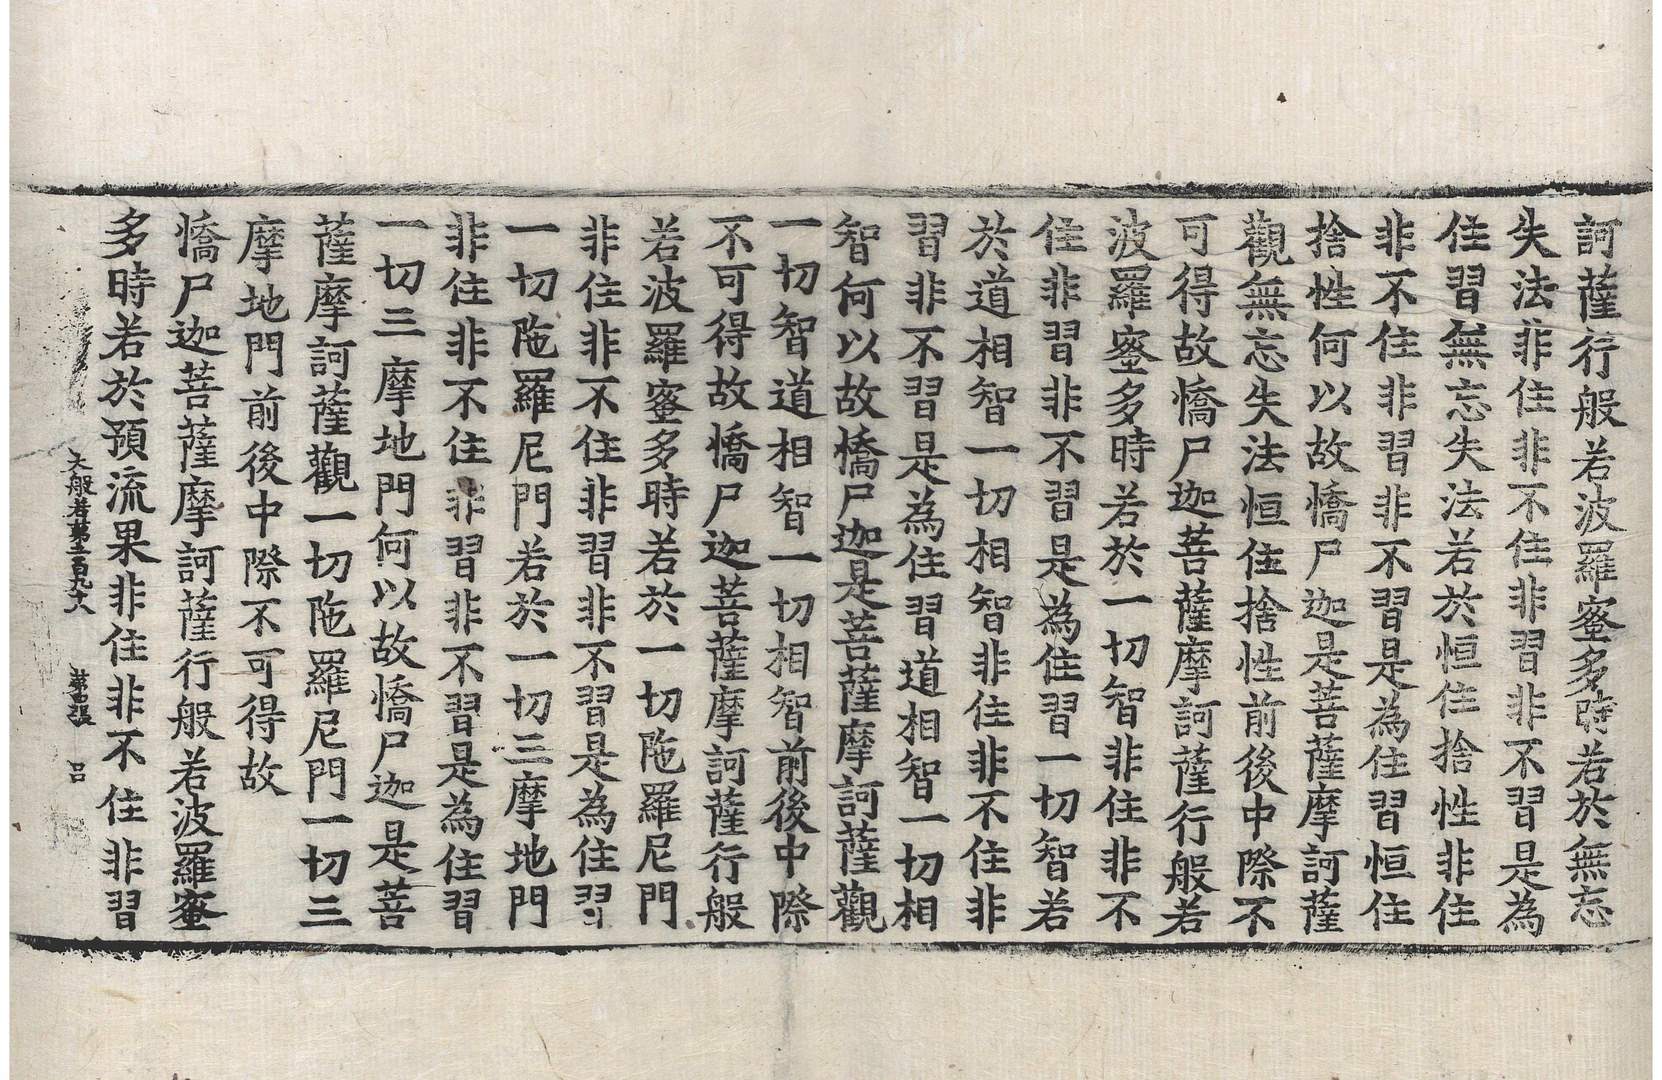 訶薩行般若波羅蜜多時若於無忘
失法非住非不住非習非不習是為
住習無忘失法若於恒住捨性非住
非不住非習非不習是為住習恒住
捨性何以故憍尸迦是菩薩摩訶薩
觀無忘失法恒住捨性前後中際不
可得故憍尸迦菩薩摩訶薩行般若
波羅蜜多時若於一切智非住非不
住非習非不習是為住習一切智若
於道相智一切相智非住非不住非
習非不習是為住習道相智一切相
智何以故憍尸迦是菩薩摩訶薩觀
一切智道相智一切相智前後中際
不可得故憍尸迦菩薩摩訶薩行般
若波羅蜜多時若於一切陁羅尼門
非住非不住非習非不習是為住習
一切陁羅尼門若於一切三摩地門
非住非不住非習非不習是為住習
一切三摩地門何以故憍尸迦是菩
薩摩訶薩觀一切陁羅尼門一切三
摩地門前後中際不可得故
憍尸迦菩薩摩訶薩行般若波羅蜜
多時若於預流果非住非不住非習
大般若第 張 呂